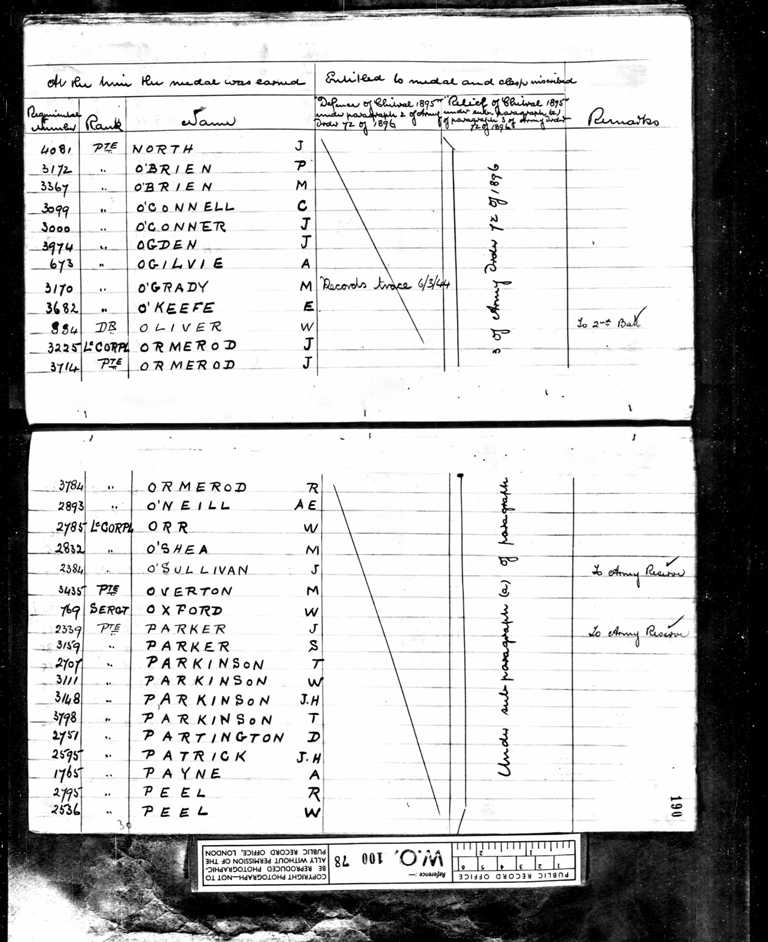 At the time the medal was earned Entitled to medal and clasp inscribed
Regimental Number Rank Name "Defence of Chitral 1895" under paragraph 2 of Army Order 72 of 1896 "Relief of Chitral 1895" under sub paragraph (a) of paragraph 3 of Army Order 72 of 1896 Remarks
4081 PTE NORTH J
3172 " O'BRIEN P
3367 " O'BRIEN M
3099 " O'CONNELL C
3000 " O'CONNER J
3974 " OGDEN J
673 " OGILVIE A
3170 " O'GRADY M Records trace 6/3/44
3682 " O'KEEFE E
884 DR OLIVER W To 2nd Batt
3225 Lce CORPL ORMEROD J
3714 PTE ORMEROD J
3 of Army Order 72 of 1896
3784 " ORMEROD R
2893 " O'NEILL AE
2785 Lce CORPL ORR W
2832 " O'SHEA M
2384 " O'SULLIVAN J To Army Reserve
3435 PTE OVERTON M
769 SERGT OXFORD W
2339 PTE PARKER J To Army Reserve
3159 " PARKER S
2707 " PARKINSON T
3111 " PARKINSON W
3148 " PARKINSON J.H
3798 " PARKINSON T
2751 " PARTINGTON D
2595 " PATRICK J.H
1765 " PAYNE A
2795 " PEEL R
2536 " PEEL W
Under sub paragraph (a) of paragraph
190
30
PUBLIC RECORD OFFICE
1 2 3 4 5 6
1 2
Reference:-
W.O. 100 78
COPYRIGHT PHOTOGRAPH—NOT TO
BE REPRODUCED PHOTOGRAPHIC-
ALLY WITHOUT PERMISSION OF THE
PUBLIC RECORD OFFICE, LONDON